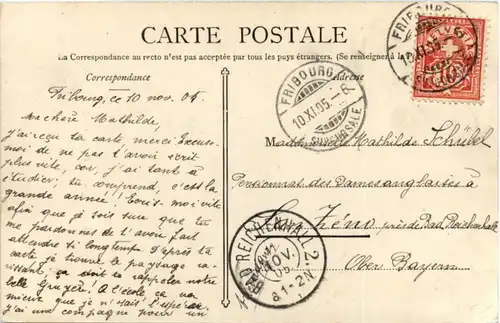 CARTE POSTALE
La Correspondance au recto n'est pas acceptée par tous les pays étrangers. (Se renseigner à la
Correspondance
Adresse
Fribourg ce 10 nov. 05.
Ma chère Mathilde,
J'ai reçu ta carte, merci. Excuse-
moi de ne pas t'avoir écrit
plus vite, car, j'ai tant à
étudier; tu comprend, c'est la
grande année! Écris-moi vite
afin que je sois sur que tu
me pardonnes de t'avoir fait
attendre si longtemps. D'après ta
carte je trouve le paysage
ça doit te rappeler notre
belle Gruyère! A l'école ça va
mieux que je n'osait l'espérer
j'ai une compagne pour un
FRIBOURG
10.XI.05.-8.
SUCCURSALE
FRIBOURG
HELVETIA
10
Mademoiselle Mathilde Schübel
Pensionnat des Dames anglaises à
St. Zéno près de Bad Reichenhall
Ober Bayern
BAD REICHENHALL 2
NOV.